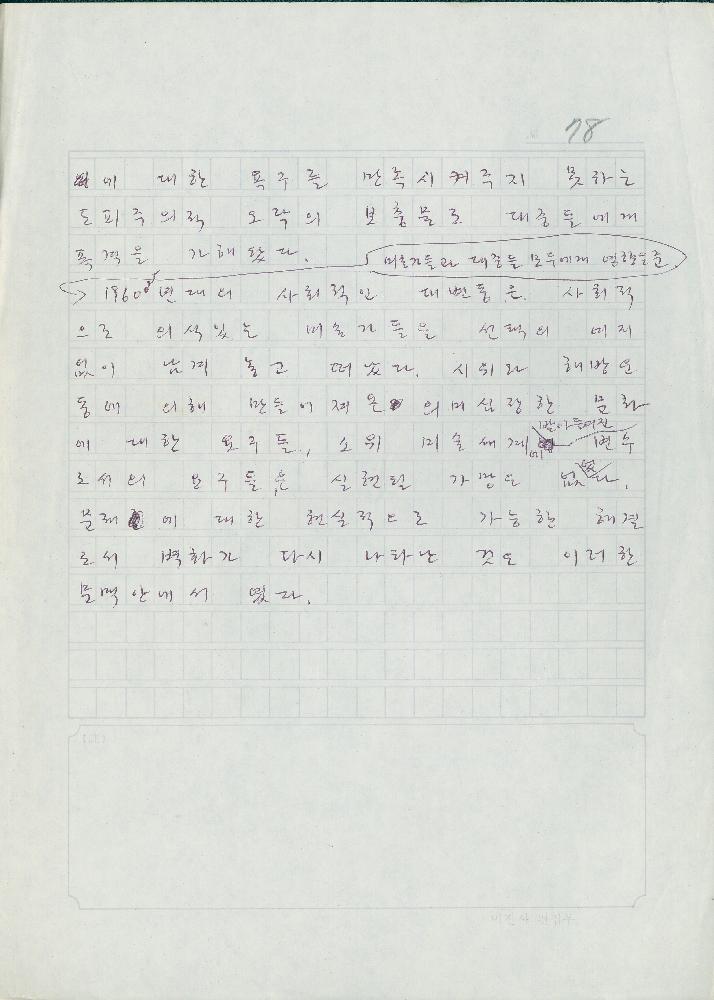 78
에 대한 욕구를 만족시켜주지 못하는
도피주의적 오락의 보충물로 대중들에게
폭격을 가해 왔다.
미술가들과 대중들 모두에게 영향을 준
1960년대의 사회적인 대변동은 사회적
으로 의식있는 미술가들을 선택의 여지
없이 남겨 놓고 떠났다. 시위와 해방운
동에 의해 만들어져 온 의미심장한 문화
에 대한 요구들, 소위 미술세계에
받아들여진
변수
로서의 요구들은 실현될 가망도 없었다.
문제에 대한 현실적으로 가능한 해결
로서 벽화가 다시 나타난 것도 이러한
문맥안에서 였다.
미진사 편집부